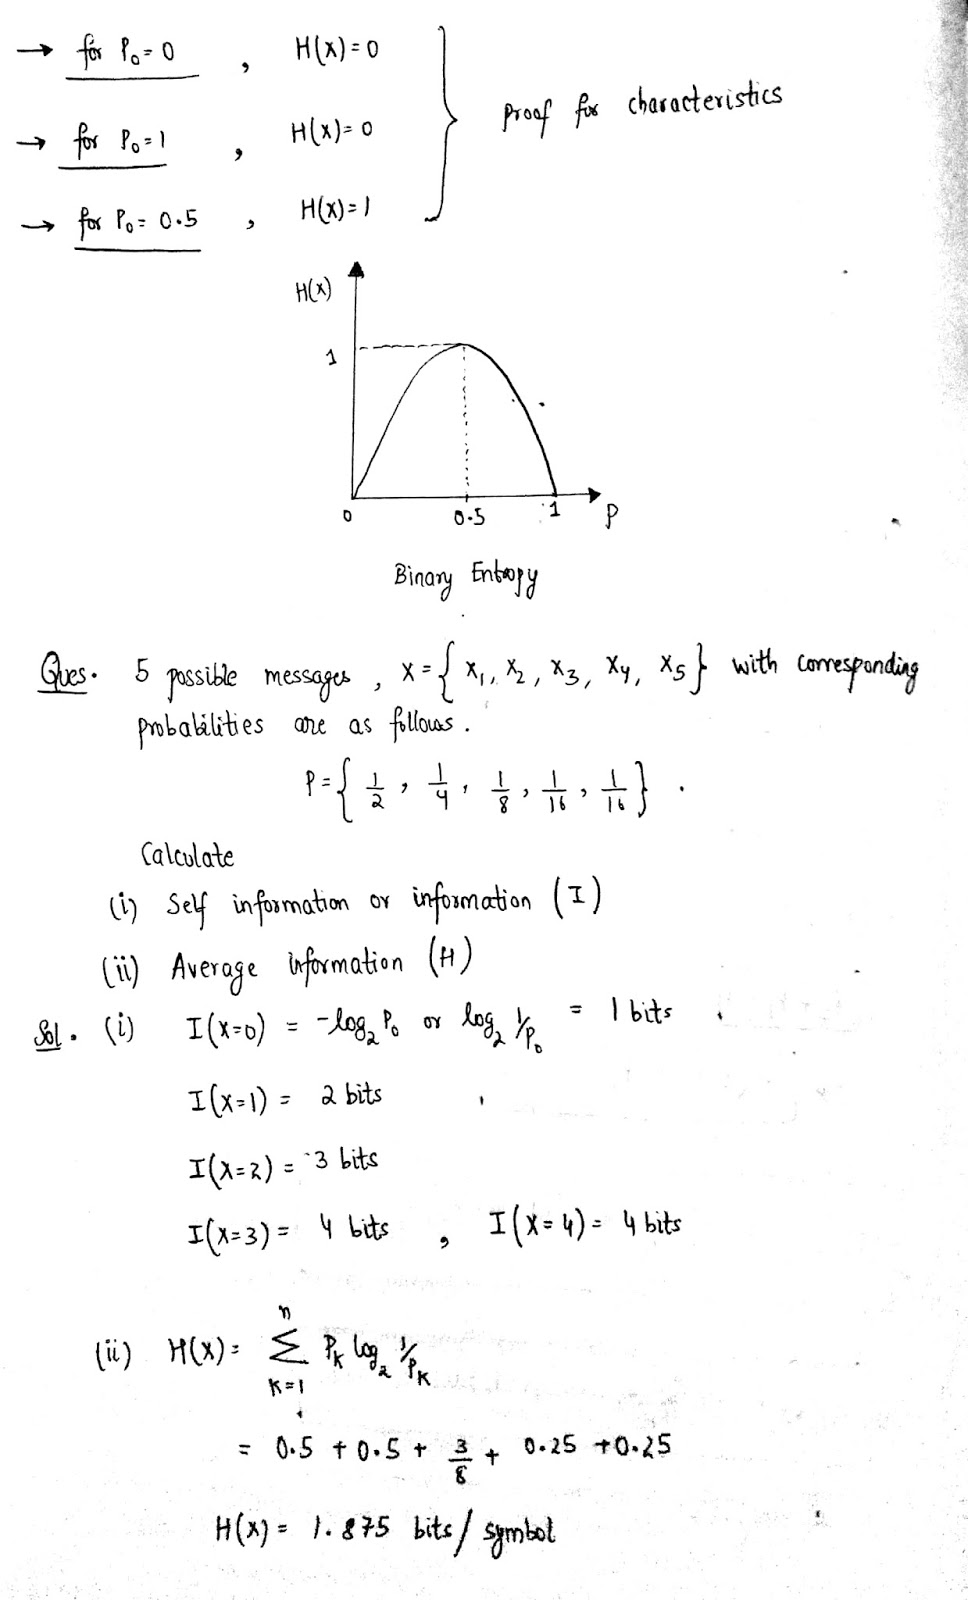 → for P₀ = 0 , H(X) = 0
→ for P₀ = 1 , H(X) = 0
→ for P₀ = 0.5 , H(X) = 1
Proof for characteristics
H(X)
1
0 0.5 1 P
Binary Entropy
Ques. 5 possible messages , X = { X₁, X₂, X₃, X₄, X₅ } with corresponding
probabilities are as follows.
P = { 1/2 , 1/4 , 1/8 , 1/16 , 1/16 } .
Calculate
(i) Self information or information (I)
(ii) Average information (H)
Sol. (i) I(X=0) = -log₂ P₀ or log₂ 1/P₀ = 1 bits
I(X=1) = 2 bits
I(X=2) = 3 bits
I(X=3) = 4 bits , I(X=4) = 4 bits
(ii) H(X) = n Σ K=1 P_K log₂ 1/P_K
= 0.5 + 0.5 + 3/8 + 0.25 + 0.25
H(X) = 1.875 bits/symbol